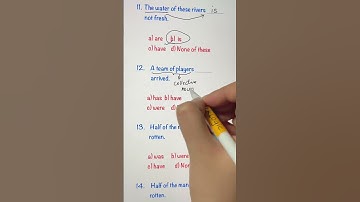 11. The water of these rivers is
not fresh.
a) are b) is
c) have d) None of these
12. A team of players
arrived.
collective
noun
a) has b) have
c) were d)
13. Half of the
rotten.
a) was b) were
c) have d) Non
14. Half of the man
rotten.